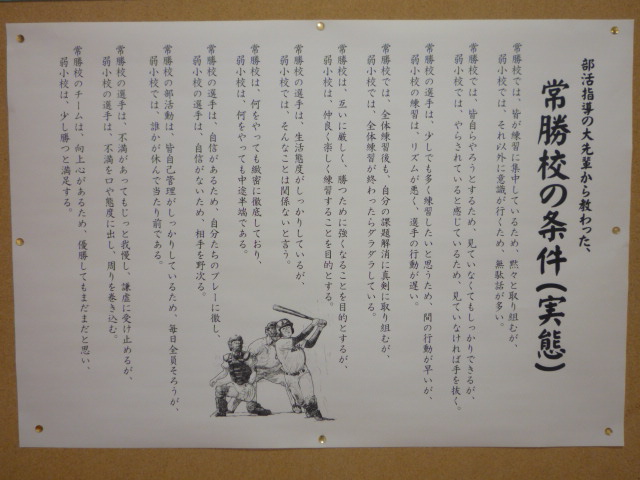 部活指導の大先輩から教わった、
常勝校の条件(実態)
常勝校では、皆が練習に集中しているため、黙々と取り組むが、
弱小校では、それ以外に意識が行くため、無駄話が多い。
常勝校では、皆自らやろうとするため、見ていなくてもしっかりできるが、
弱小校では、やらされていると感じているため、見ていなければ手を抜く。
常勝校の選手は、少しでも多く練習したいと思うため、間の行動が早いが、
弱小校の練習は、リズムが悪く、選手の行動が遅い。
常勝校では、全体練習後も、自分の課題解消に真剣に取り組むが、
弱小校では、全体練習が終わったらグラグラしている。
常勝校は、互いに厳しく、勝つために強くなることを目的とするが、
弱小校は、仲良く楽しく練習することを目的とする。
常勝校の選手は、生活態度がしっかりしているが、
弱小校では、そんなことは関係ないと言う。
常勝校は、何をやっても緻密に徹底しており、
弱小校は、何をやっても中途半端である。
常勝校の選手は、自信があるため、自分たちのプレーに徹し、
弱小校の選手は、自信がないため、相手を野次る。
常勝校の部活動は、皆自己管理がしっかりしているため、毎日全員そろうが、
弱小校では、誰かが休んで当たり前である。
常勝校の選手は、不満があってもじっと我慢し、謙虚に受け止めるが、
弱小校の選手は、不満を口や態度に出し、周りを巻き込む。
常勝校のチームは、向上心があるため、優勝してもまだまだと思い、
弱小校は、少し勝つと満足する。